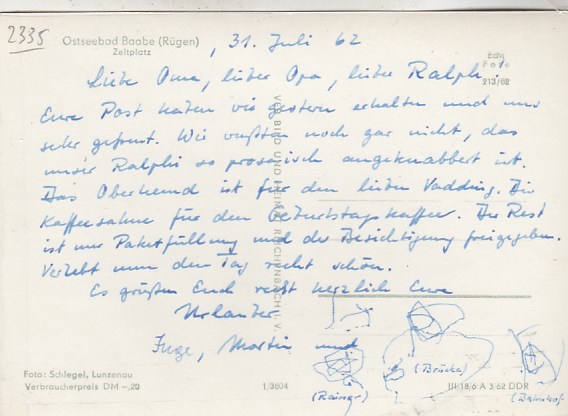 2335
Ostseebad Baabe (Rügen)
Zeltplatz
, 31. Juli 62
Echt
Foto
213/62
Liebe Oma, lieber Opa, lieber Ralph.
Eure Post haben wir gestern erhalten und uns
sehr gefreut. Wir wußten noch gar nicht, das
unser Ralphi so prosaisch angeknabbert ist.
Das Oberhemd ist für den lieben Vadding. Die
Kaffeesahne für den Geburtstagskaffee. Der Rest
ist nur Paketfüllung und der Besichtigung freigegeben.
Verlebt nun den Tag recht schön.
Es grüßen Euch recht herzlich Eure
Urlauber
Inge, Martin und
(Rainer)
(Brücke)
(Bahnhof)
VEB BILD UND HEIMAT REICHENBACH I. V.
Foto: Schlegel, Lunzenau
Verbraucherpreis DM –,20
1/3604
III 18/6 A 3 62 DDR